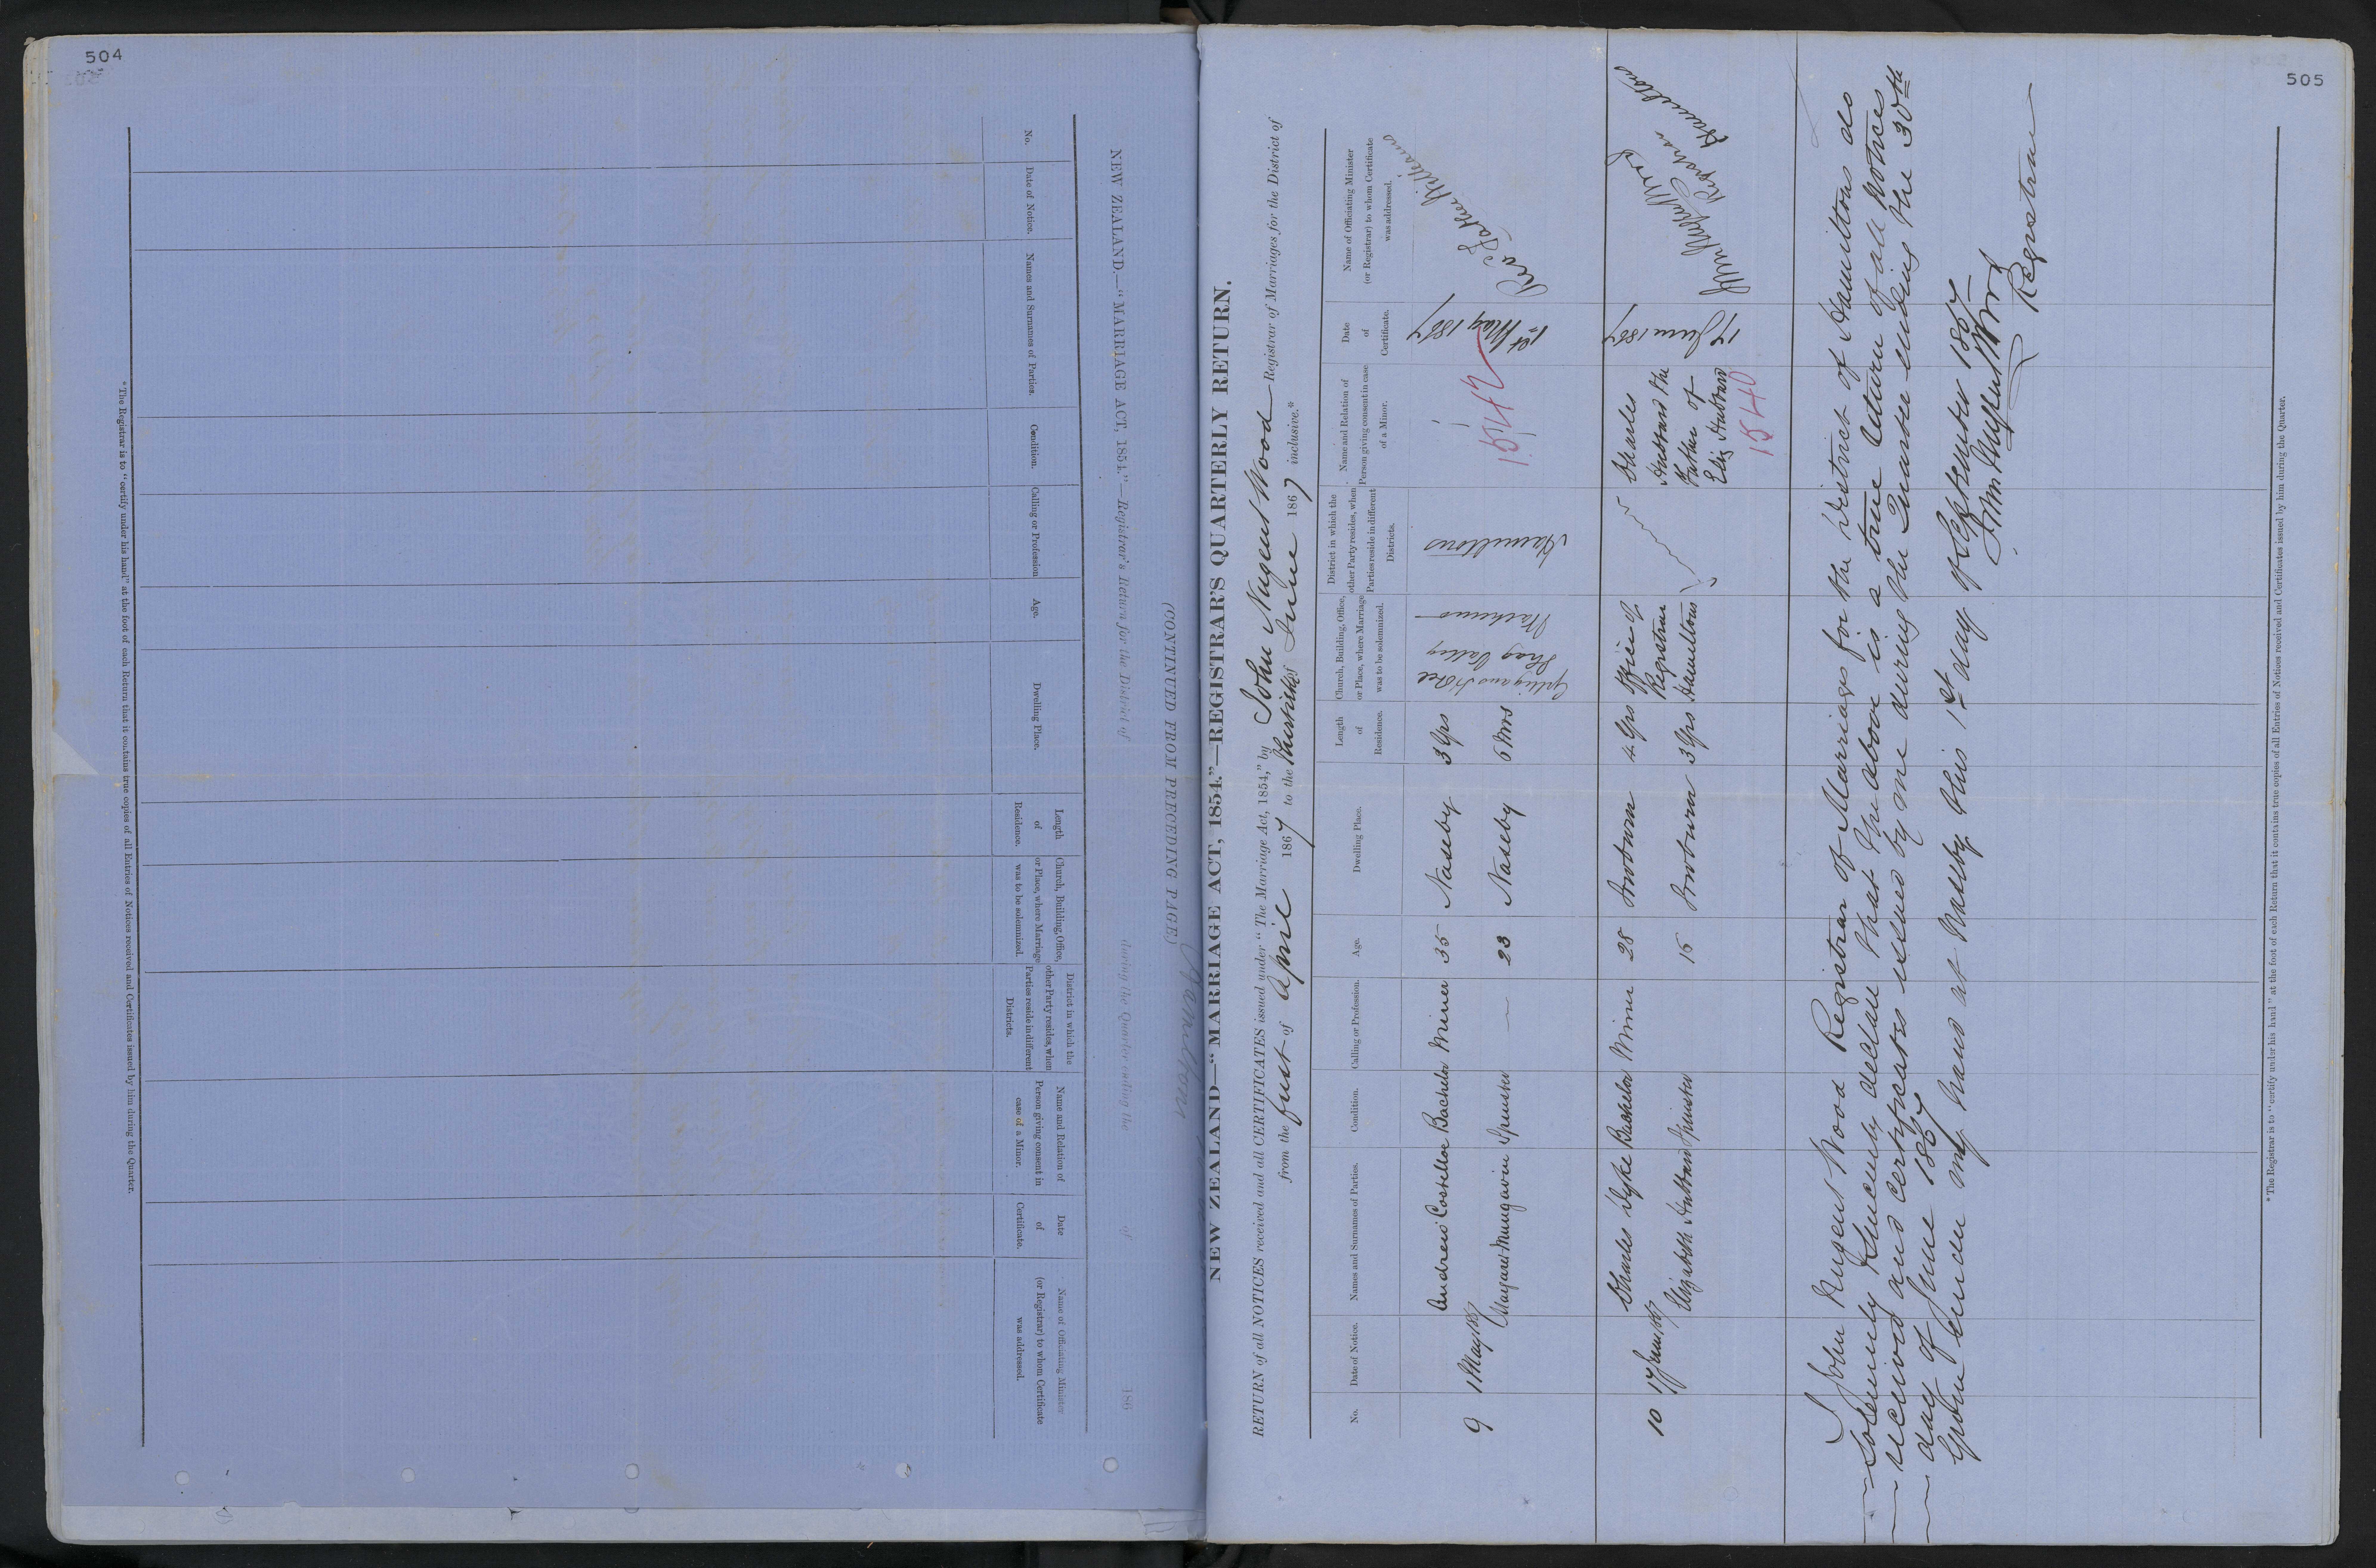 504
NEW ZEALAND.—"MARRIAGE ACT, 1854."—Registrar's Return for the District of
during the Quarter ending the of 186
(CONTINUED FROM PRECEDING PAGE)
No.
Date of Notice.
Names and Surnames of Parties.
Condition.
Calling or Profession
Age.
Dwelling Place.
Length of Residence.
Church, Building, Office, or Place, where Marriage was to be solemnized.
District in which the other Party resides, when Parties reside in different Districts.
Name and Relation of Person giving consent in case of a Minor.
Date of Certificate.
Name of Officiating Minister (or Registrar) to whom Certificate was addressed.
*The Registrar is to "certify under his hand" at the foot of each Return that it contains true copies of all Entries of Notices received and Certificates issued by him during the Quarter.
505
NEW ZEALAND—"MARRIAGE ACT, 1854."—REGISTRAR'S QUARTERLY RETURN.
RETURN of all NOTICES received and all CERTIFICATES issued under "The Marriage Act, 1854," by John Nugent Wood Registrar of Marriages for the District of
from the first of April 1867 to the thirtieth of June 1867 inclusive.*
No.
Date of Notice.
Names and Surnames of Parties.
Condition.
Calling or Profession.
Age.
Dwelling Place.
Length of Residence.
Church, Building, Office, or Place, where Marriage was to be solemnized.
District in which the other Party resides, when Parties reside in different Districts.
Name and Relation of Person giving consent in case of a Minor.
Date of Certificate.
Name of Officiating Minister (or Registrar) to whom Certificate was addressed.
9 1 May 1867 Andrew Costelloe Bachelor Miner 35 Naseby 3 Yrs Shag Valley Hamiltons 1st May 1867
Margaret Mungavin Spinster — 23 Naseby 6 Mos
1542
10 17 June 1867 Charles Dyke Bachelor Miner 28 Sowburn 4 Yrs Office of Registrar Hamiltons Charles Hubbard the Father of Eliz Hubbard 17 June 1867 John Nugent Wood Registrar Hamiltons
Elizabeth Hubbard Spinster 15 Sowburn 3 Yrs
1540
I John Nugent Wood Registrar of Marriages for the District of Hamiltons do
solemnly & sincerely declare that the above is a true return of all notices
received and certificates issued by me during the Quarter ending the 30th
day of June 1867
Given under my hand at Naseby this 1st day of September 1867
Jno Nugent Wood
Registrar
*The Registrar is to "certify under his hand" at the foot of each Return that it contains true copies of all Entries of Notices received and Certificates issued by him during the Quarter.